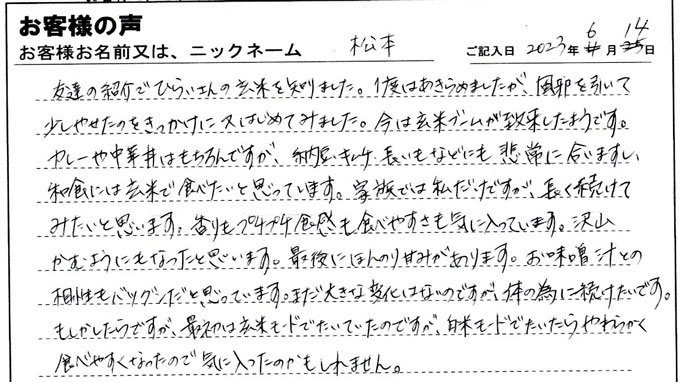 お客様の声
お客様お名前又は、ニックネーム 松本 ご記入日 2023年 6月 14日
友達の紹介でひらいさんの玄米を知りました。1度はあきらめましたが、風邪を引いて
少しやせたのをきっかけに又はじめてみました。今は玄米ブームが到来したようです。
カレーや中華丼はもちろんですが、納豆、キムチ、長いもなどにも非常に合いますし、
和食には玄米で食べたいと思っています。家族では私だけですが、長く続けて
みたいと思います。香りもプチプチ食感も食べやすさも気に入っています。沢山
かむようにもなったと思います。最後にほんのり甘みがあります。お味噌汁との
相性もバツグンだと思っています。まだ大きな変化はないのですが、体の為に続けたいです。
もしかしたらですが、最初は玄米モードでたいていたのですが、白米モードでたいたらやわらかく
食べやすくなったので気に入ったのかもしれません。